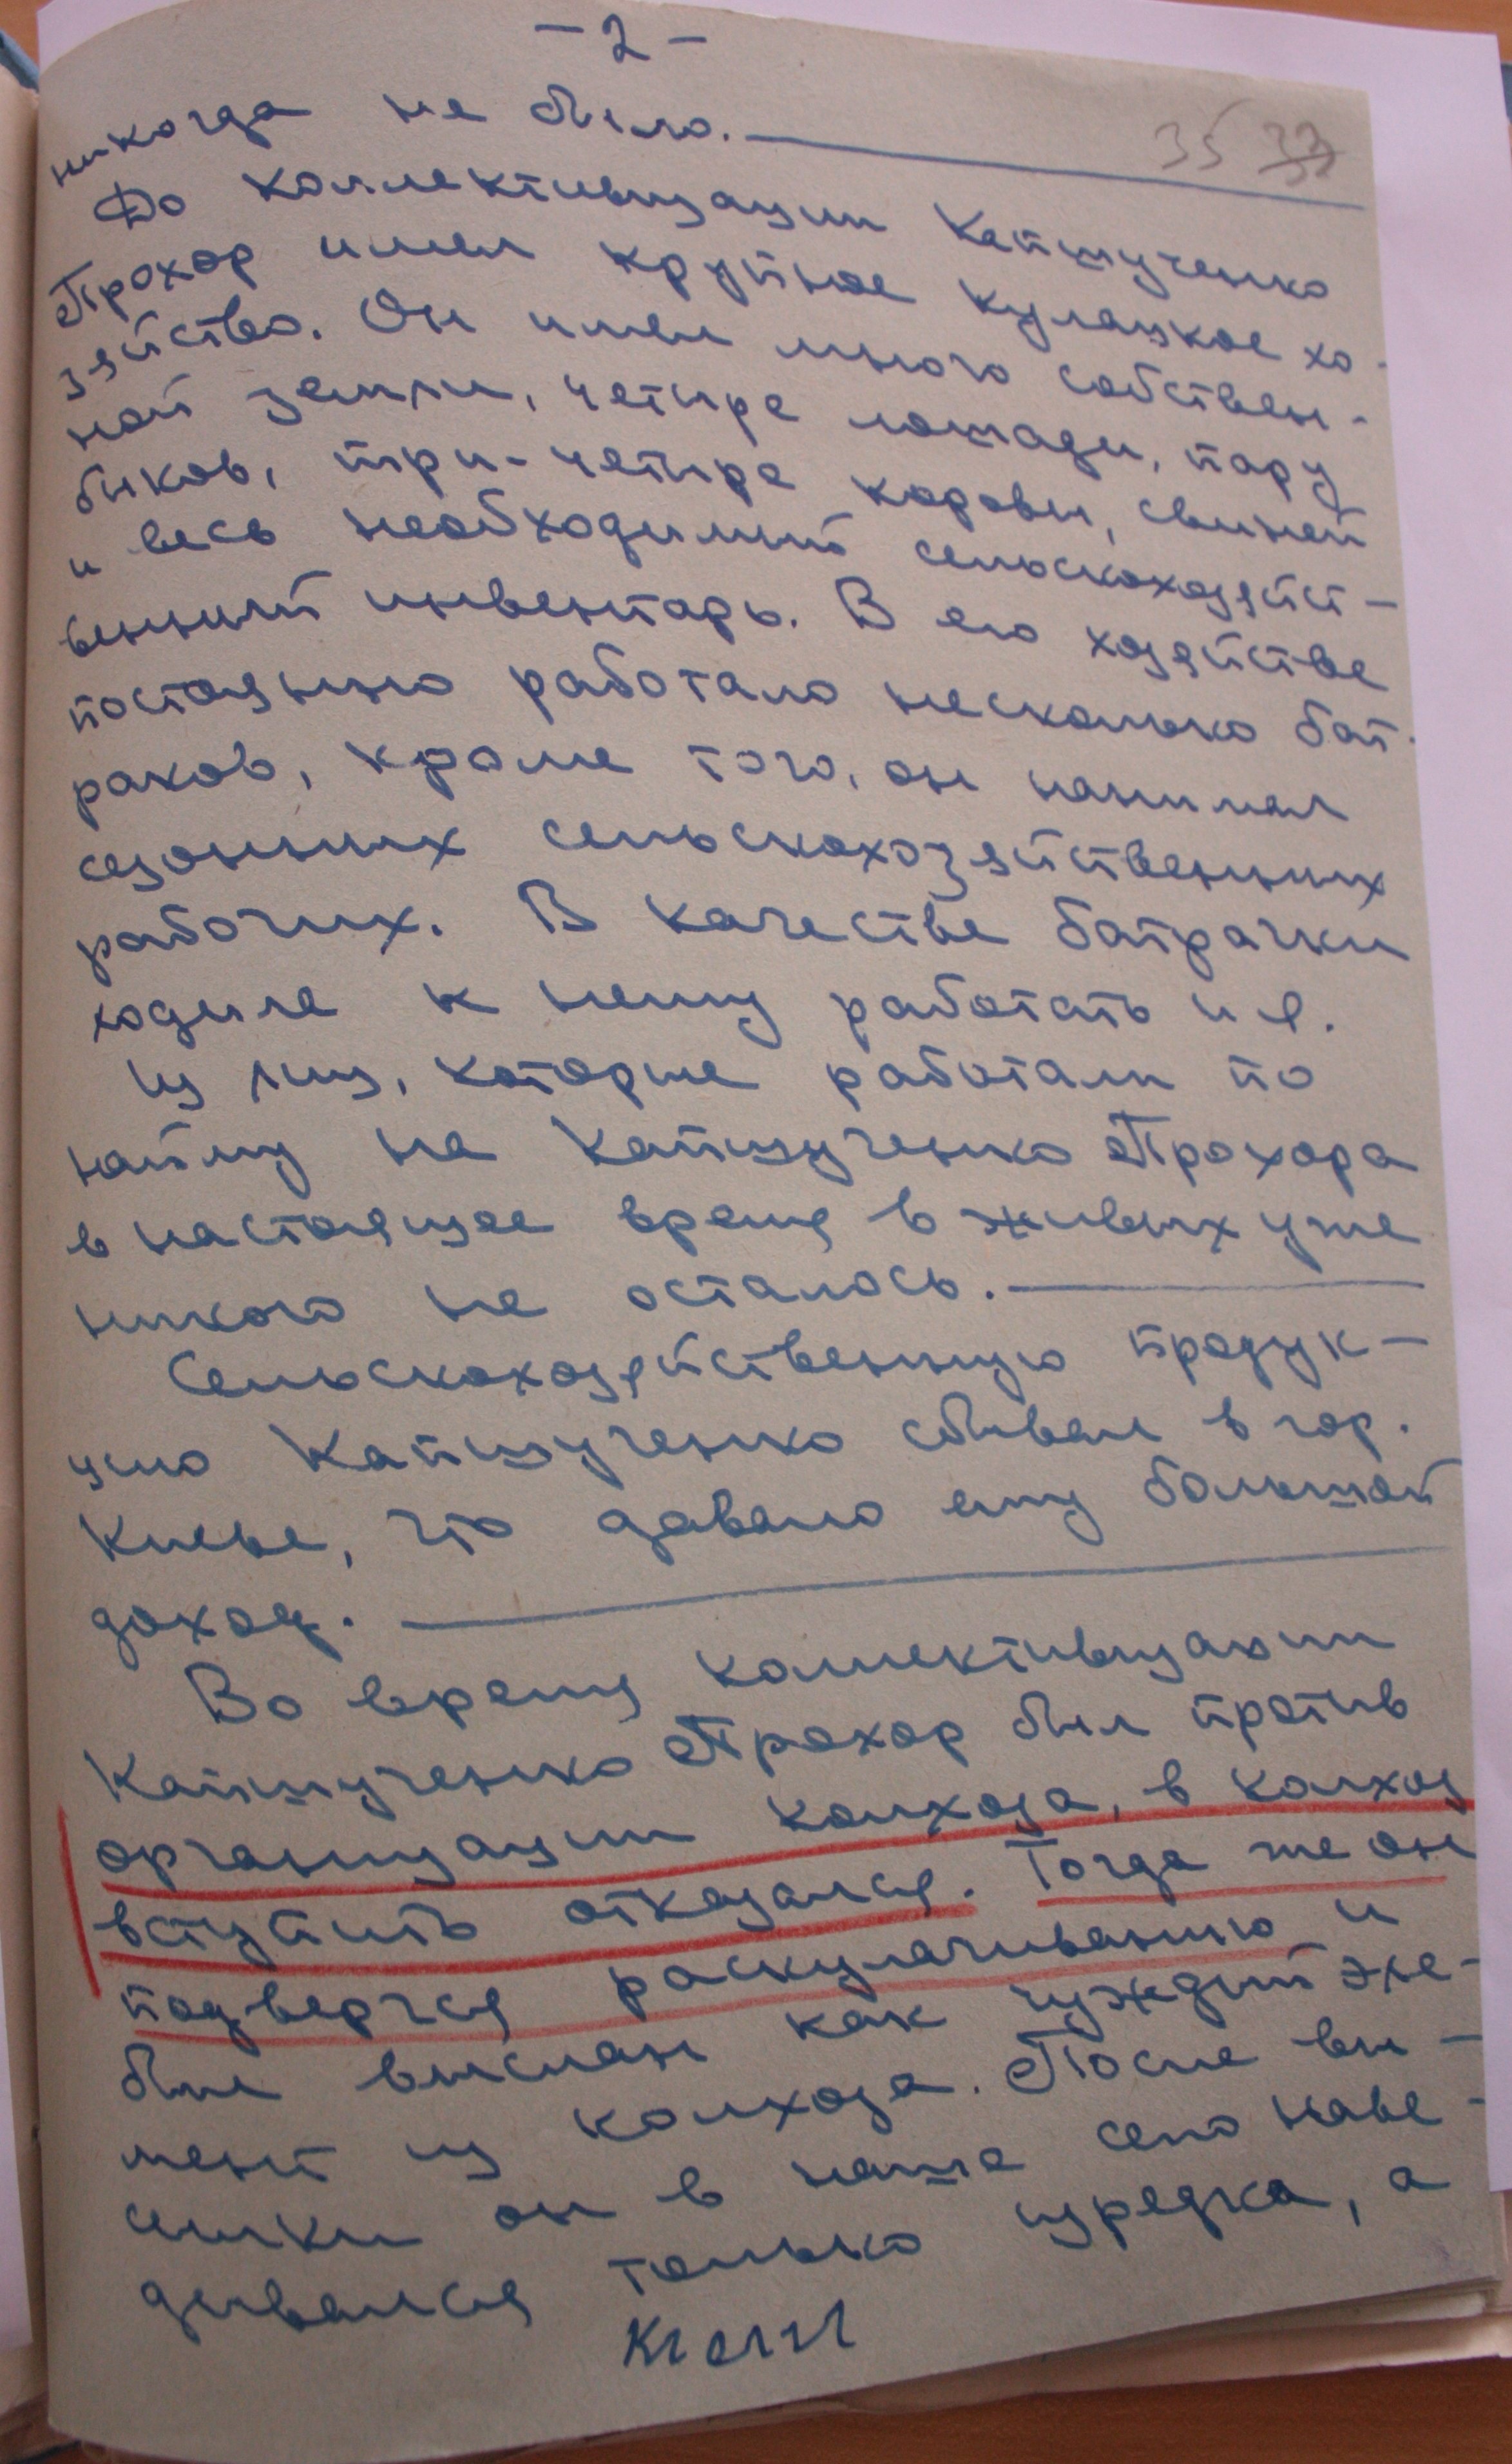 - 2 -
35 33
никогда не было.
До коллективизации Капшученко
Прохор имел крупное кулацкое хо-
зяйство. Он имел много собствен-
ной земли, четыре лошади, пару
быков, три-четыре коровы, свиней
и весь необходимый сельскохозяйст-
венный инвентарь. В его хозяйстве
постоянно работало несколько бат-
раков, кроме того, он нанимал
сезонных сельскохозяйственных
рабочих. В качестве батрачки
ходила к нему работать и я.
Из лиц, которые работали по
найму на Капшученко Прохора
в настоящее время в живых уже
никого не осталось.
Сельскохозяйственную продук-
цию Капшученко сбывал в гор.
Киеве, что давало ему большой
доход.
Во время коллективизации
Капшученко Прохор был против
организации колхоза, в колхоз
вступить отказался. Тогда же он
подвергся раскулачиванию и
был выслан как чуждый эле-
мент из колхоза. После вы-
сылки он в наше село наве-
дывался только изредка, а